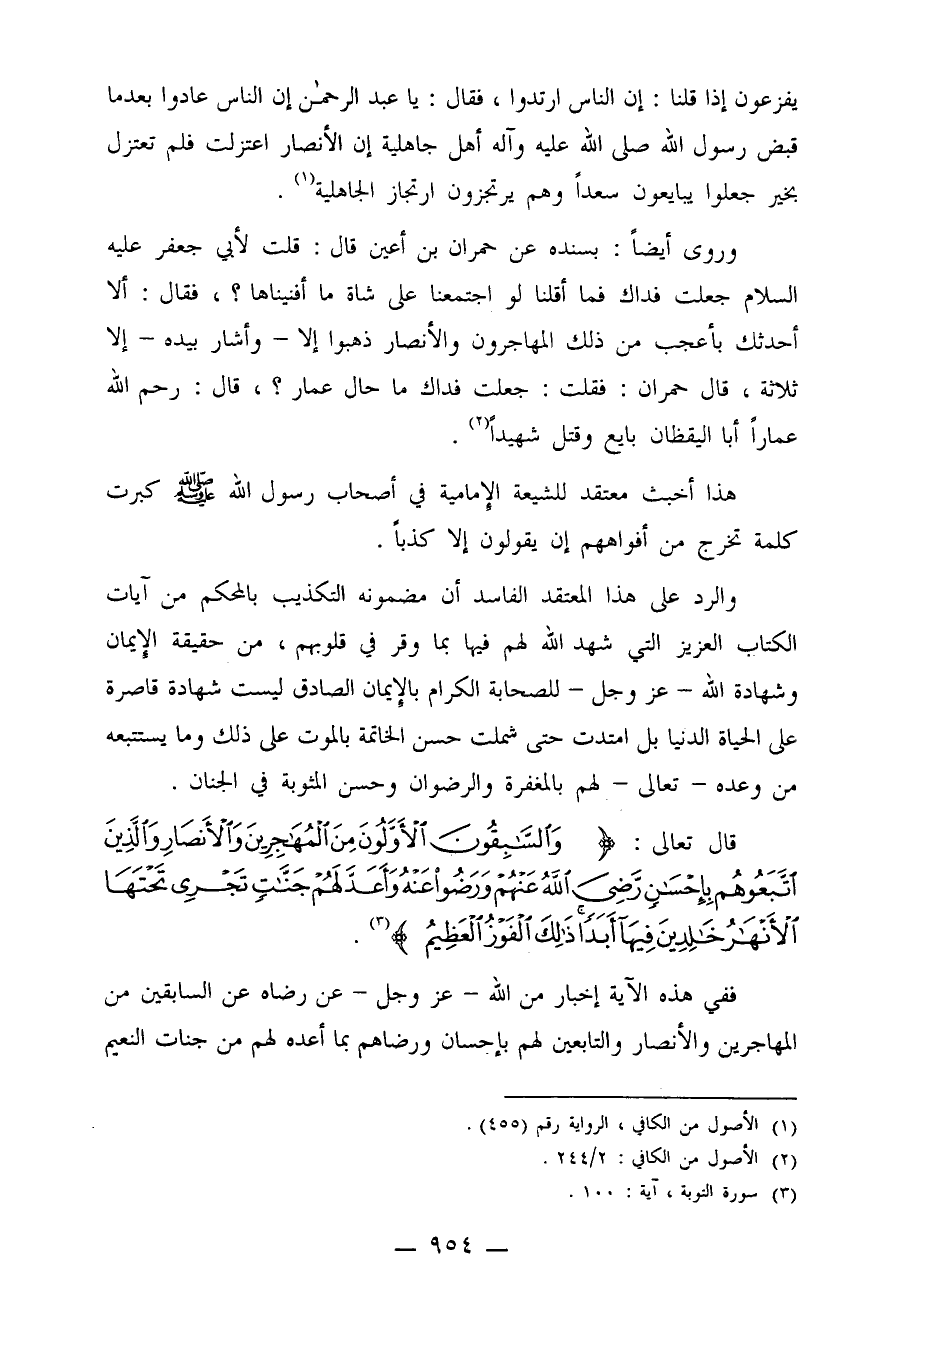 يفزعون إذا قلنا : إن الناس ارتدوا ، فقال : يا عبد الرحمٰن إن الناس عادوا بعدما
قبض رسول الله صلى الله عليه وآله أهل جاهلية إن الأنصار اعتزلت فلم تعتزل
بخير جعلوا يبايعون سعداً وهم يرتجزون ارتجاز الجاهلية(١) .
وروى أيضاً : بسنده عن حمران بن أعين قال : قلت لأبي جعفر عليه
السلام جعلت فداك فما أقلنا لو اجتمعنا على شاة ما أفنيناها ؟ ، فقال : ألا
أحدثك بأعجب من ذلك المهاجرون والأنصار ذهبوا إلا – وأشار بيده – إلا
ثلاثة ، قال حمران : فقلت : جعلت فداك ما حال عمار ؟ ، قال : رحم الله
عماراً أبا اليقظان بايع وقتل شهيداً(٢) .
هذا أخبث معتقد للشيعة الإمامية في أصحاب رسول الله ﷺ كبرت
كلمة تخرج من أفواههم إن يقولون إلا كذباً .
والرد على هذا المعتقد الفاسد أن مضمونه التكذيب بالمحكم من آيات
الكتاب العزيز التي شهد الله لهم فيها بما وقر في قلوبهم ، من حقيقة الإيمان
وشهادة الله – عز وجل – للصحابة الكرام بالإيمان الصادق ليست شهادة قاصرة
على الحياة الدنيا بل امتدت حتى شملت حسن الخاتمة بالموت على ذلك وما يستتبعه
من وعده – تعالى – لهم بالمغفرة والرضوان وحسن المثوبة في الجنان .
قال تعالى : ﴿ وَالسَّٰبِقُونَ ٱلْأَوَّلُونَ مِنَ ٱلْمُهَٰجِرِينَ وَٱلْأَنصَارِ وَٱلَّذِينَ
ٱتَّبَعُوهُم بِإِحْسَٰنٍ رَّضِىَ ٱللَّهُ عَنْهُمْ وَرَضُوا۟ عَنْهُ وَأَعَدَّ لَهُمْ جَنَّٰتٍ تَجْرِى تَحْتَهَا
ٱلْأَنْهَٰرُ خَٰلِدِينَ فِيهَآ أَبَدًا ۚ ذَٰلِكَ ٱلْفَوْزُ ٱلْعَظِيمُ ﴾(٣) .
ففي هذه الآية إخبار من الله – عز وجل – عن رضاه عن السابقين من
المهاجرين والأنصار والتابعين لهم بإحسان ورضاهم بما أعده لهم من جنات النعيم
(١) الأصول من الكافي ، الرواية رقم (٤٥٥) .
(٢) الأصول من الكافي : ٢٤٤/٢ .
(٣) سورة التوبة ، آية : ١٠٠ .
– ٩٥٤ –